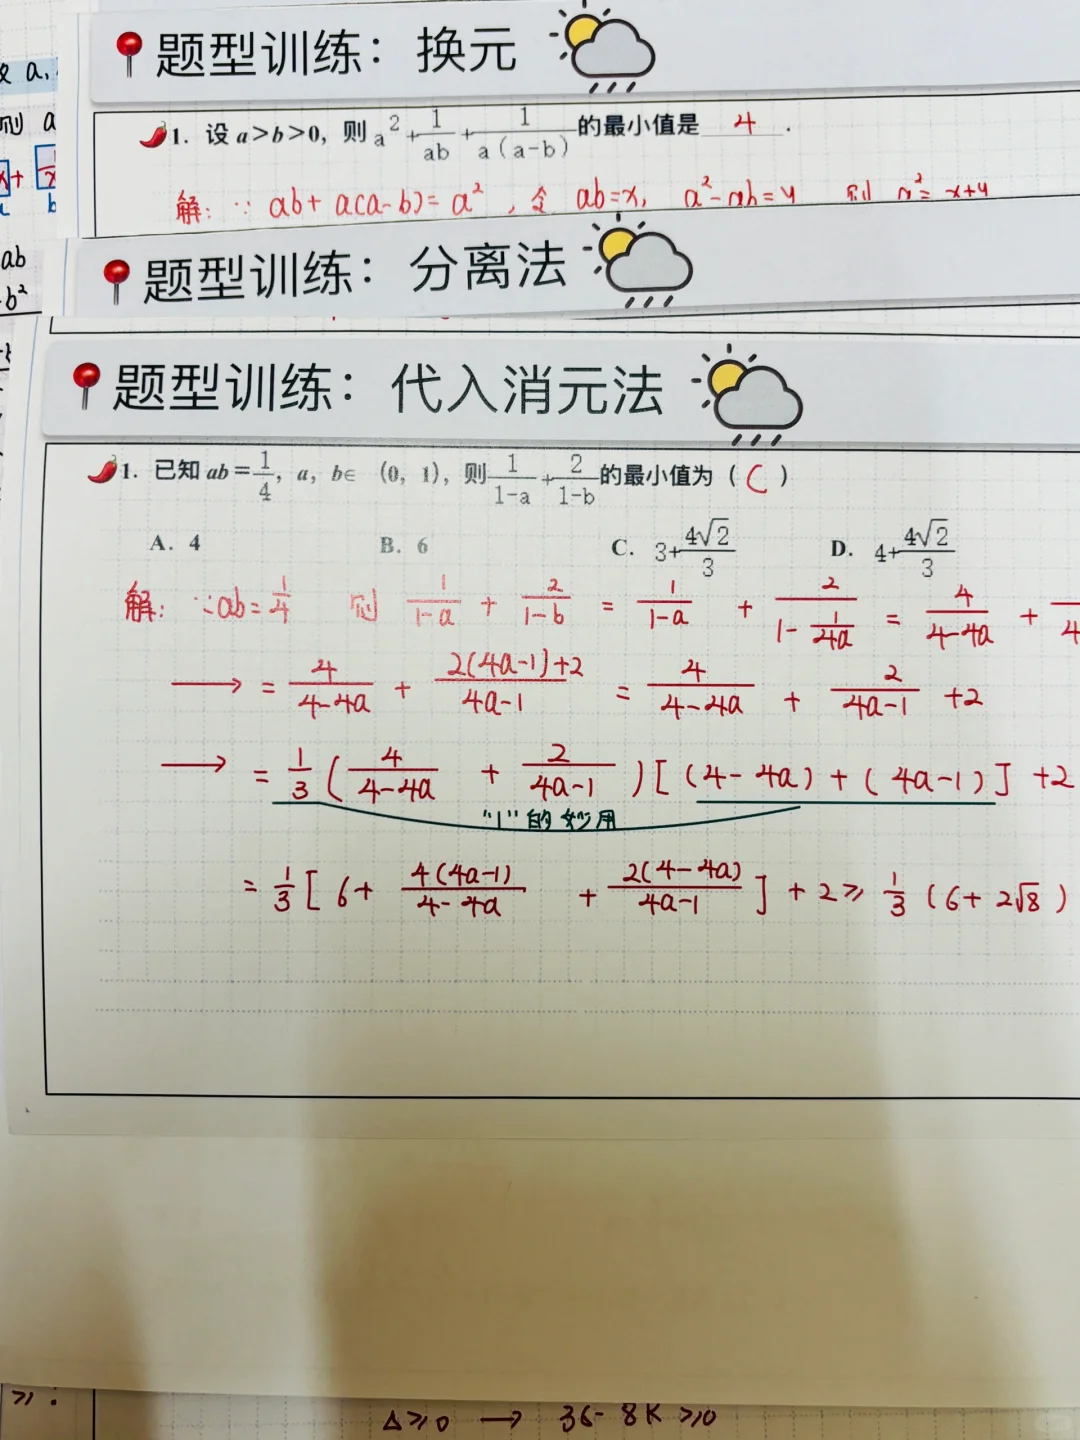 题型训练：换元
1. 设 a>b>0，则 a²+1/ab+1/a(a-b)的最小值是 4 .
解：∵ ab+a(a-b)=a²，令 ab=x, a²-ab=y 则 a²=x+y
题型训练：分离法
ab
b²
题型训练：代入消元法
1. 已知 ab=1/4，a，b∈（0，1），则1/1-a+2/1-b的最小值为（C）
A. 4 B. 6 C. 3+4√2/3 D. 4+4√2/3
解：∵ab=1/4 则 1/1-a + 2/1-b = 1/1-a + 2/1-1/4a = 4/4-4a +
→ = 4/4-4a + 2(4a-1)+2/4a-1 = 4/4-4a + 2/4a-1 +2
→ = 1/3(4/4-4a + 2/4a-1)[(4-4a)+(4a-1)]+2
"1"的妙用
= 1/3[6+ 4(4a-1)/4-4a + 2(4-4a)/4a-1]+2≥1/3(6+2√8)
Δ≥0 → 36-8k≥0